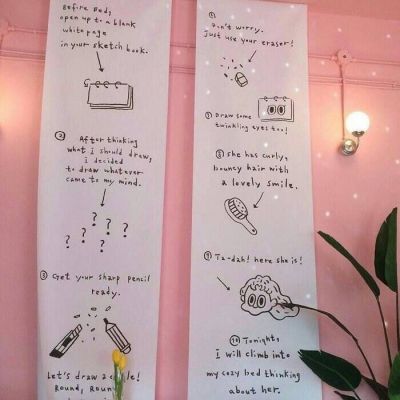 Before Bed,
open up to a blank
white page
in your sketch book.
② After thinking
what I should draw,
i decided
to draw whatever
came to my mind.
? ? ? ? ? ?
③ Get your sharp pencil
ready.
Let's draw a circle!
Round, Round
Don't worry.
Just use your eraser!
⑦ Draw some
twinkling eyes too!
⑧ she has curly,
bouncy hair with
a lovely smile.
⑨ Ta-dah! here she is!
⑩ Tonight,
I will climb into
my cozy bed thinking
about her.